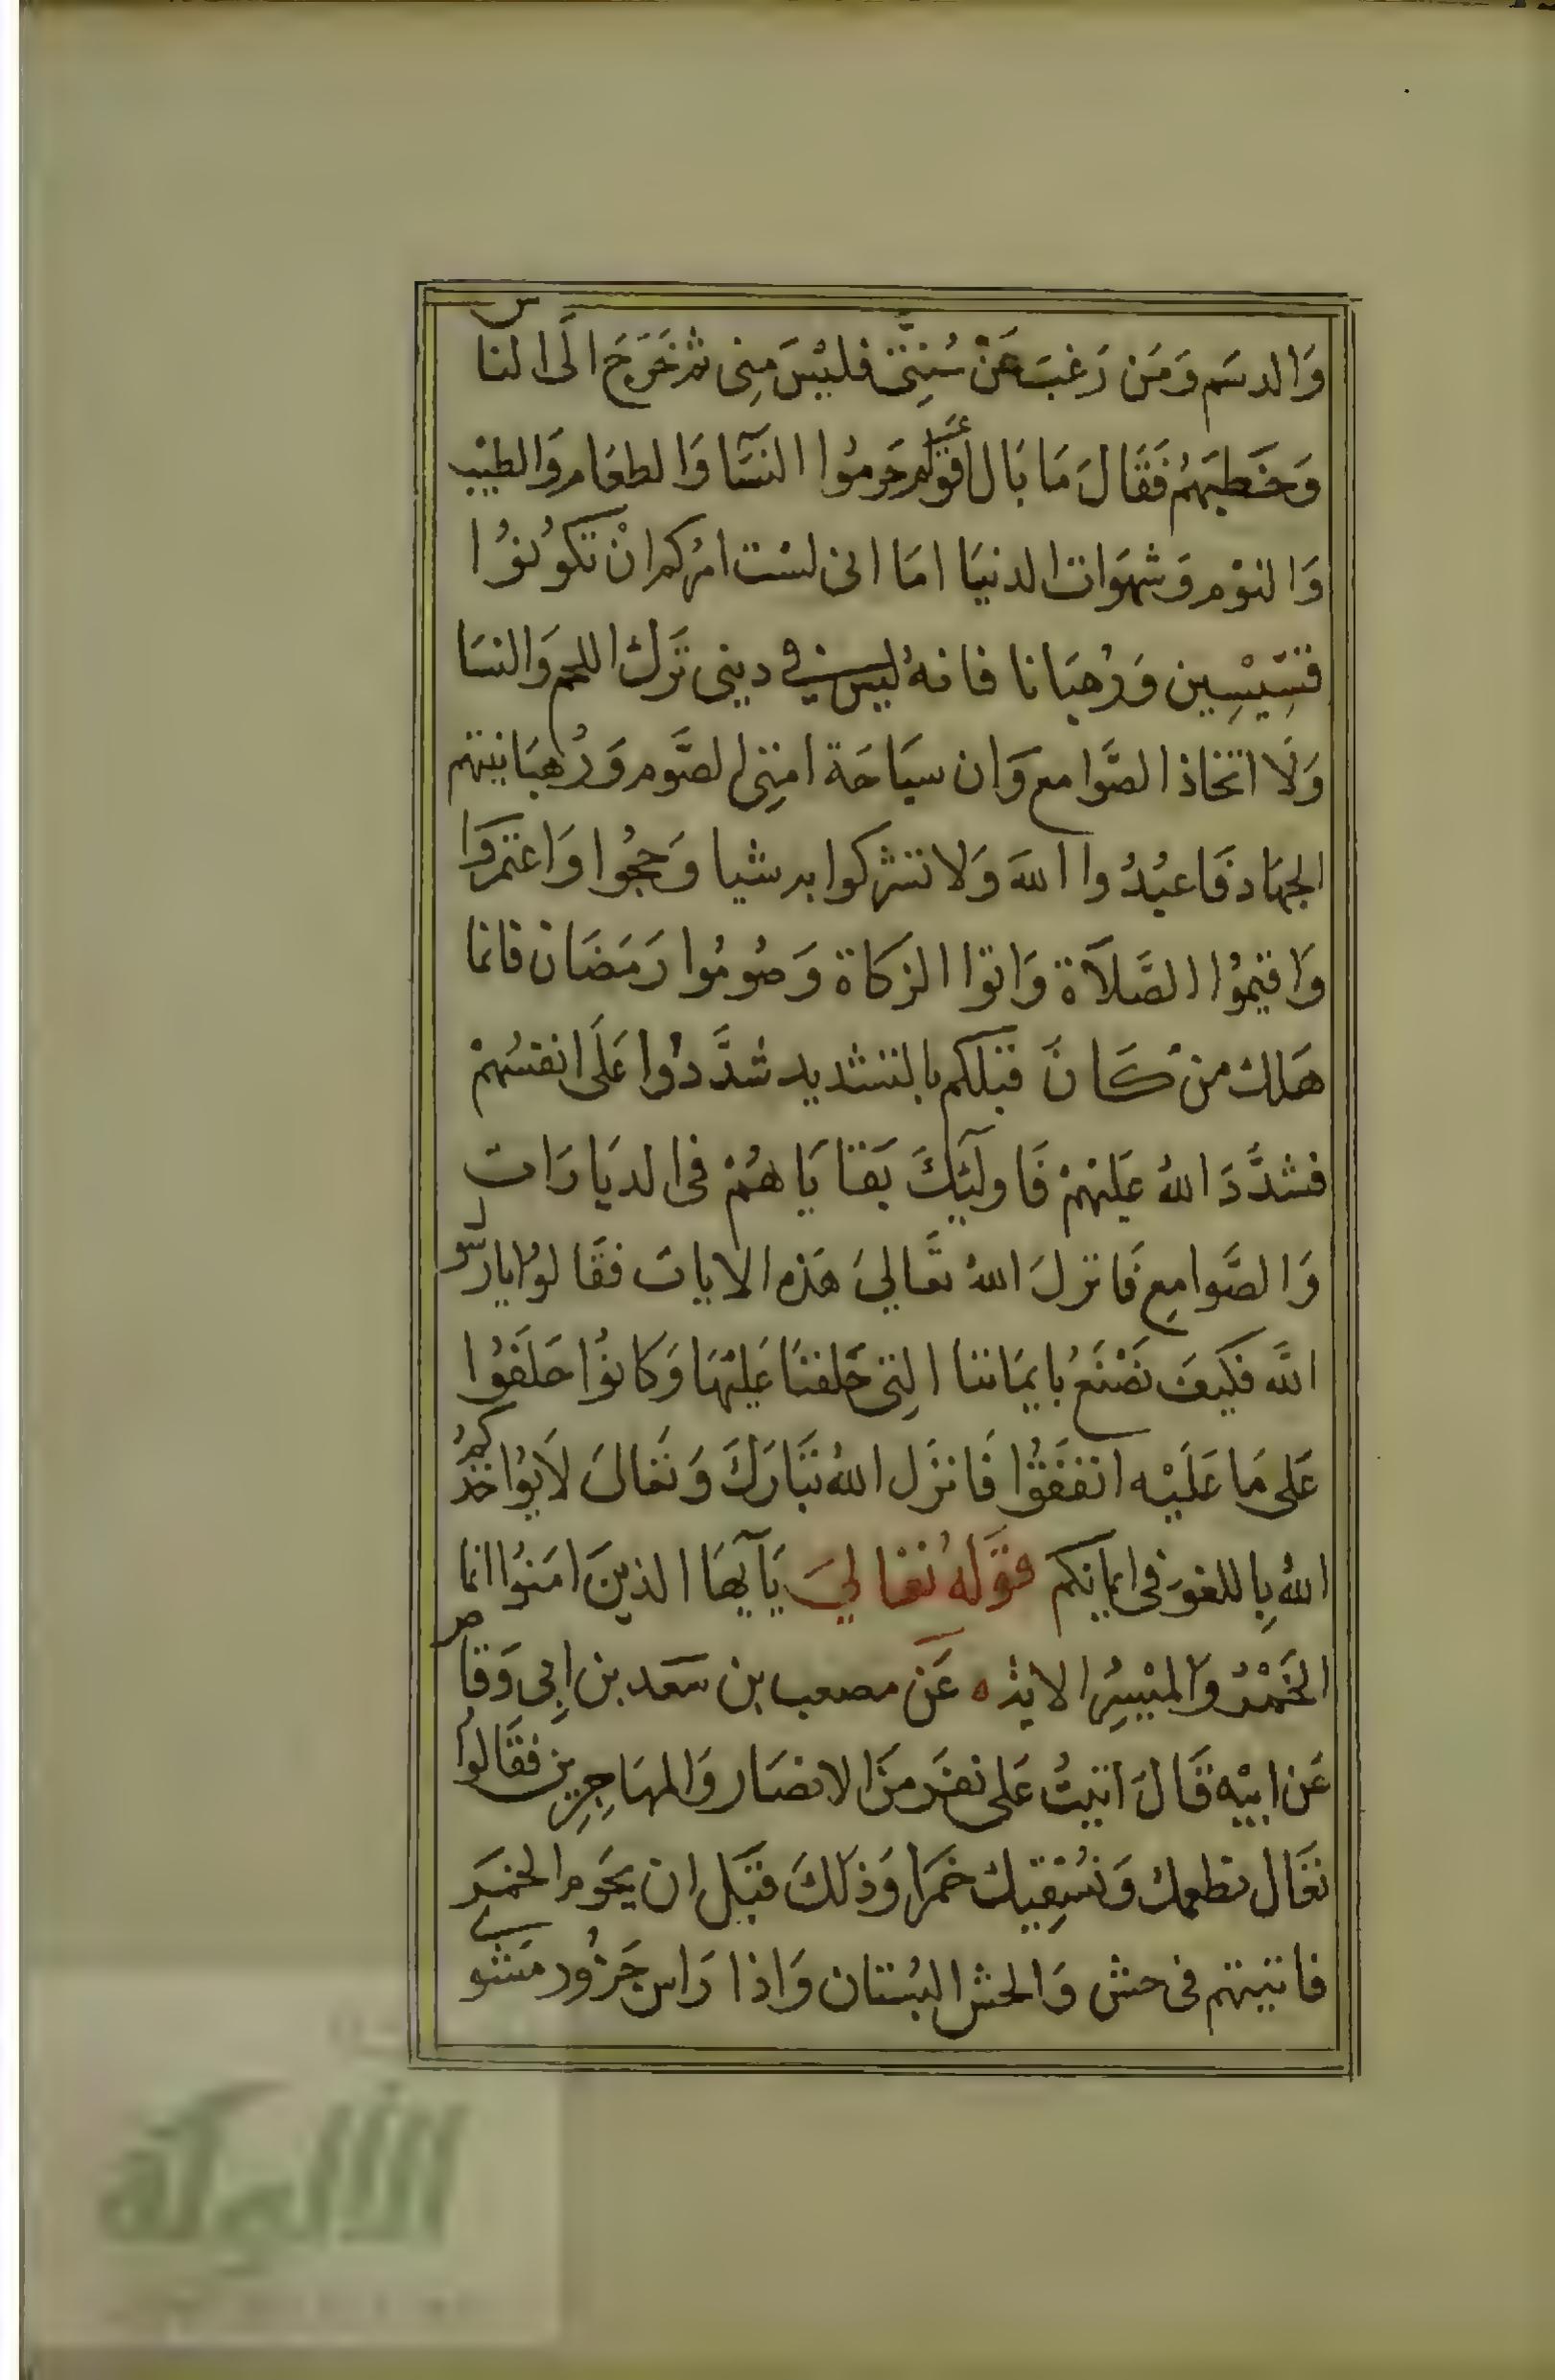 وَالدسَم وَمَن رَغبَ عَنْ سُنتِى فليْسَ مِنى ثم خَرَجَ الَى الناس
وَخَطبَهُم فَقَالَ مَا بَال اقوَام حَرموُا النسَآ وَالطعَام وَالطيْب
وَالنوْم وَشهَوَات الدنيَا امَا انى لسْت امُركم انْ تكوُنوُا
قسِيْسِين وَرُهبَانا فانهُ ليس فى دينى تَرك اللحم وَالنسَا
وَلَا اتخاذ الصَّوامع وَان سيَاحَة امتِى الصَّوم وَرُهبَانيتهم
الجهَاد فَاعبُدُوا اللهَ وَلا تشركوا به شيا وَحجُوا وَاعتمرَوا
وَاقيموُا الصَّلَاة وَاتوا الزكَاة وَصُومُوا رَمَضَان فانما
هَلك منْ كَانَ قبلكم بالتشديد شدَّدوُا عَلَى انفسُهمْ
فشدَّدَ اللهُ عَليْهمْ فَاولَئِكَ بَقايَاهُمْ فى الديَارَات
وَالصَّوامِع فَانزلَ اللهُ تعَالىَ هَذه الايات فقَالوُا يارَسُول
اللَّه فكيفَ نَصْنَعُ بايمَاننا التِى حَلفنَا عَليْهَا وَكانوُا حَلَفوُا
عَلى مَا عَلَيْه اتفقَوُا فَانزَل اللهُ تبَارَكَ وَتعَالىَ لَا يوُاخذكمُ
اللهُ بِاللغوَ فى ايمانكم قوَلهُ تعَالىَ يَآيهَا الذينَ امَنوُا انما
الخَمْرُ وَالميْسِرُ الاية عَن مصعب بن سَعد بن ابِى وَقاص
عَن ابيْه قَالَ اتيتُ عَلى نفَر منَ الانصَار وَالمهَاجِرِين فقَالوُا
تعَال نطعمك وَنسْقِيك خمرَا وَذلكَ قبَل ان يحَرم الخمَر
فاتيتهم فى حش وَالحش البُستان وَاذا رَاس جَزُور مَشوى
الألوكة